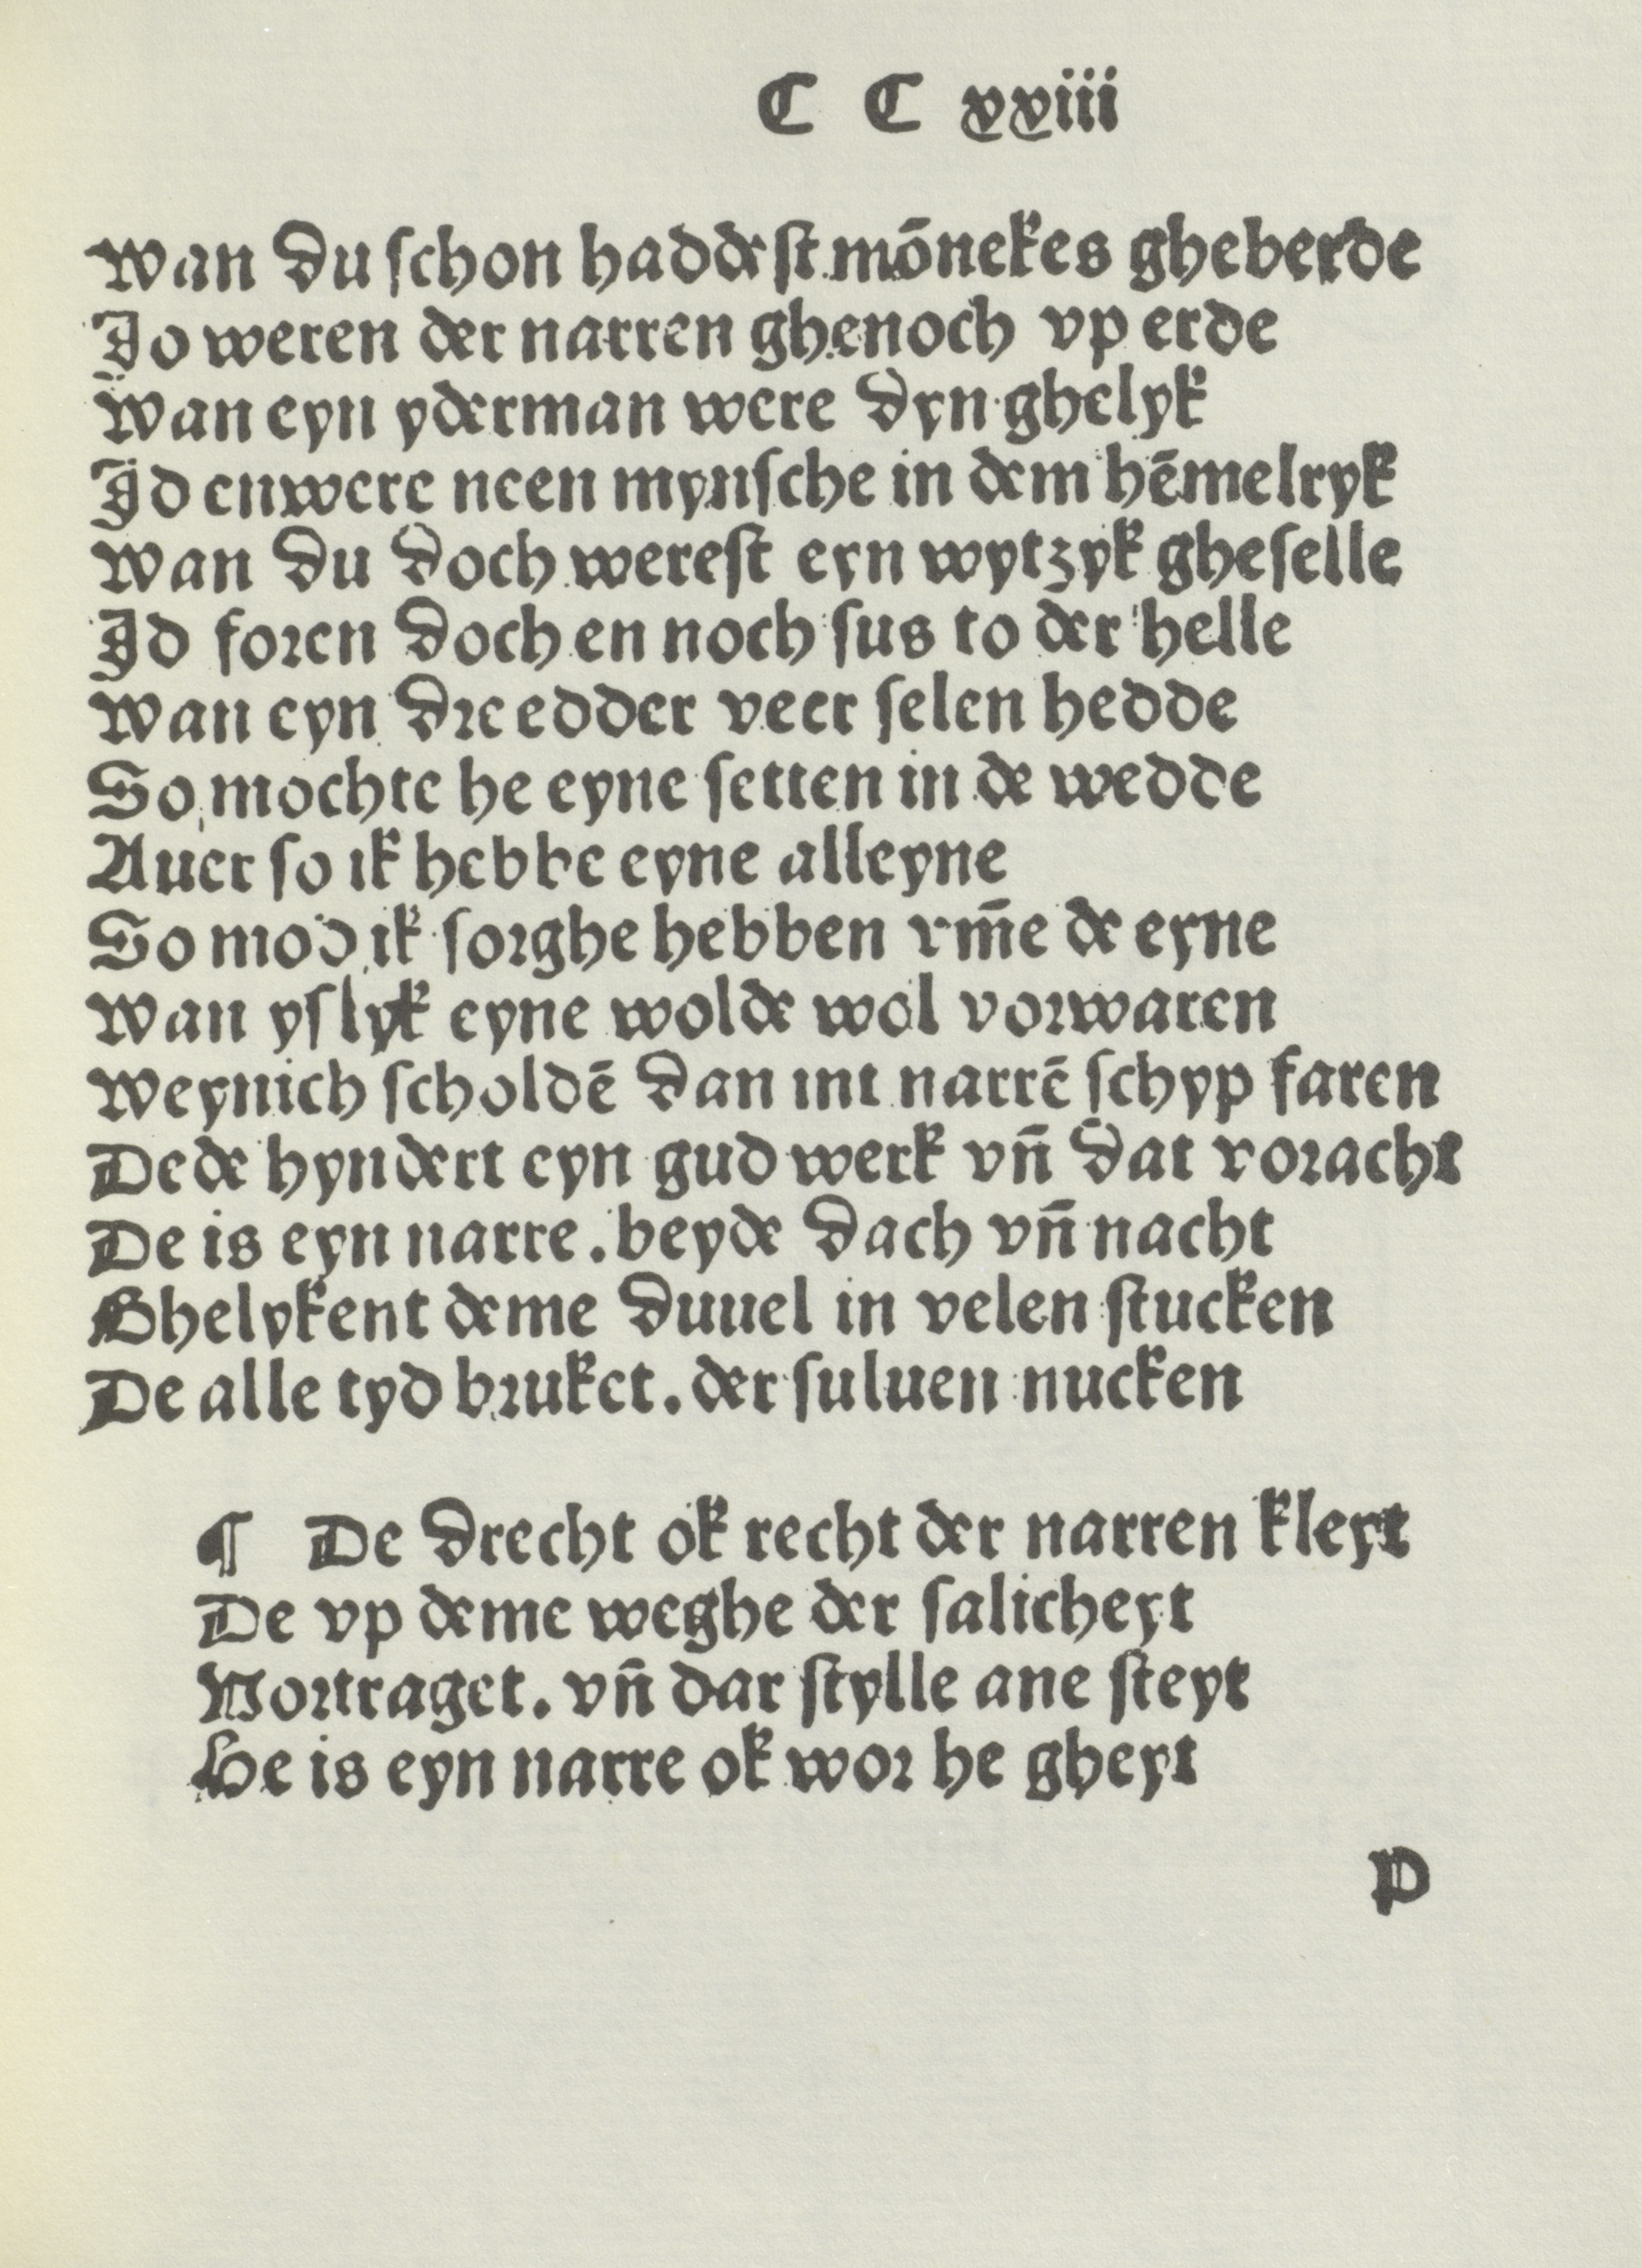 C C xxiii
Wan du ſchon haddeſt mōnekes gheberde
Jo weren der narren ghenoch vp erde
Wan eyn yderman were dyn ghelyk
Jd enwere neen mynſche in dem hēmelryk
Wan du doch wereſt eyn wytzyk gheſelle
Jd foꝛen doch en noch ſus to der helle
Wan eyn dꝛe edder veer ſelen hedde
So mochte he eyne ſetten in de wedde
Auer ſo ik hebbe eyne alleyne
So mod ik ſoꝛghe hebben vm̄e de eyne
Wan yſlyk eyne wolde wol voꝛwaren
Weynich ſcholdē dan int narrē ſchyp faren
Dede hyndert eyn gud werk vn̄ dat voꝛacht
De is eyn narre. beyde dach vn̄ nacht
Ghelykent deme duuel in velen ſtucken
De alle tyd bꝛuket. der ſuluen nucken
¶ De drecht ok recht der narren kleyt
De vp deme weghe der ſalicheyt
Voꝛtraget. vn̄ dar ſtylle ane ſteyt
He is eyn narre ok woꝛ he gheyt
p